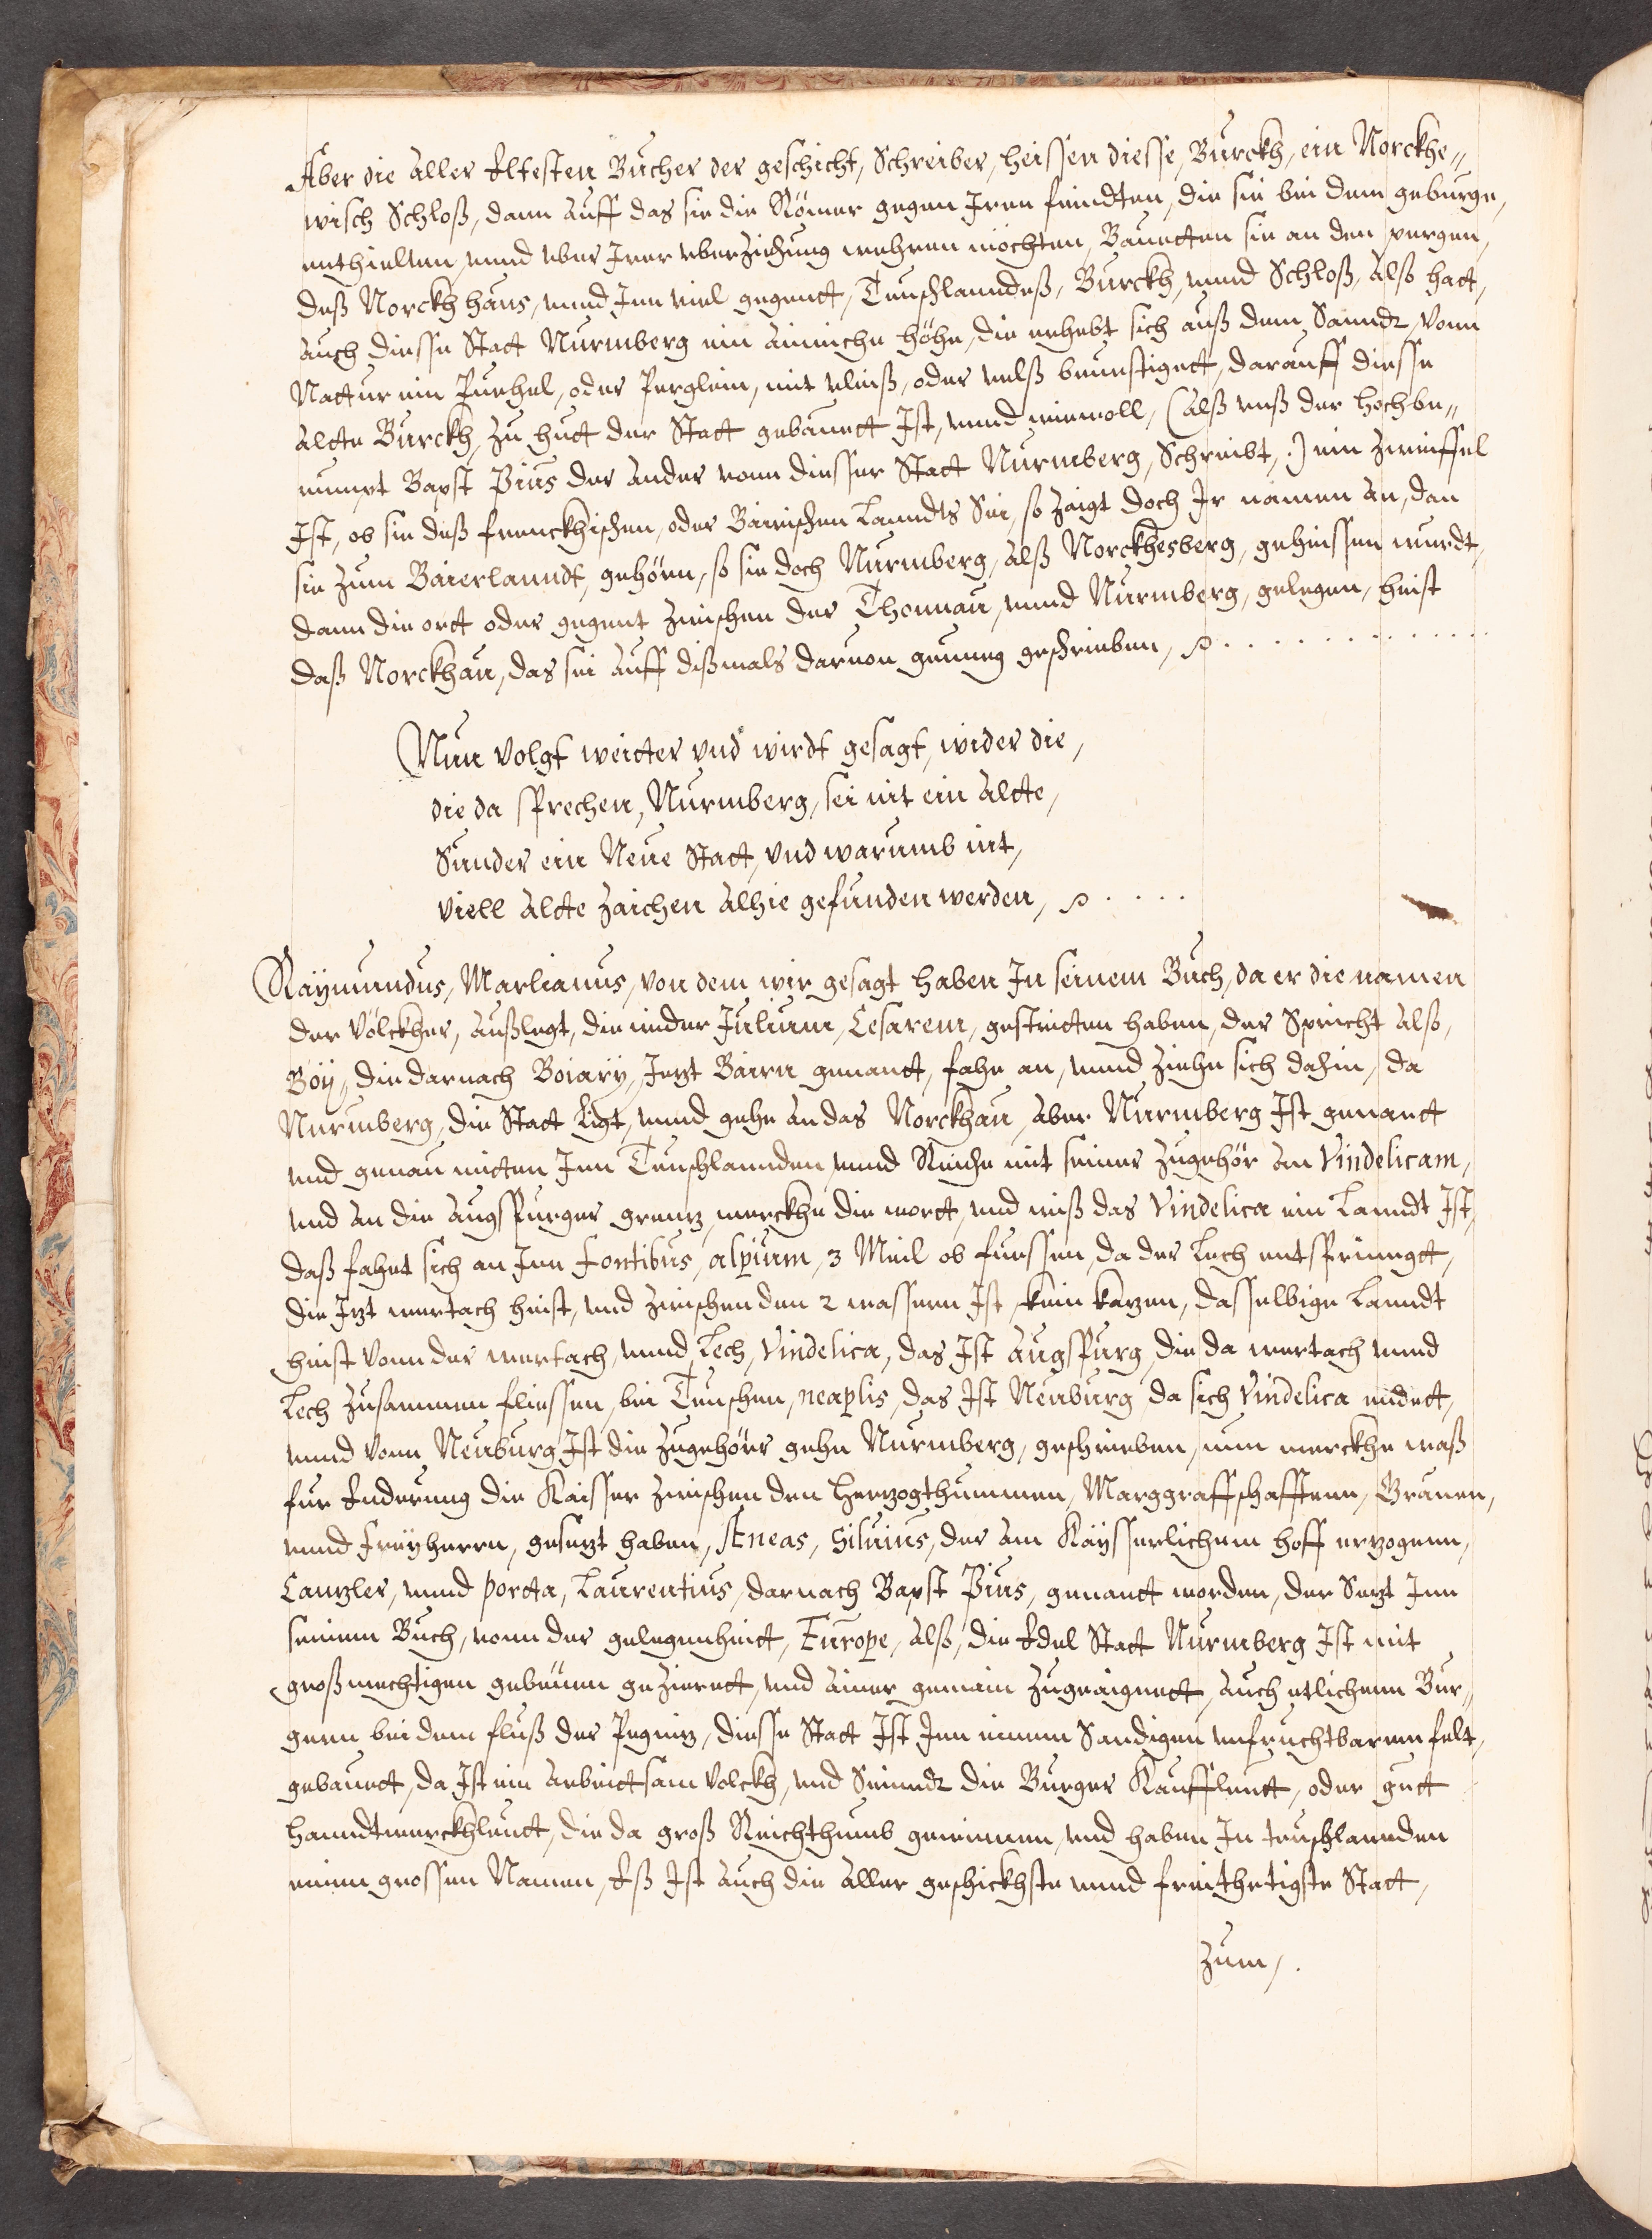 Aber die aller Eltesten Bücher der geschicht, Schreiber, heissen diesse, Burckh, ein Norckhe„
wisch Schloß, dann auff das sie die Römer gegen Iren feindten, die sie bei dem geburge,
enthielten, unnd uber Irer uberziehung wehren möchten, Bauetten sie an den pergen,
deß Norckhhaus, unnd Inn viel gegentt, Teuschlanndeß, Burckh, unnd Schloß, Also hatt,
auch diesse Statt Nurmberg ein ainiche höhe, die erhebt sich auß dem Sanndt, vonn
Nattur ein Puehel, oder Perglein, mit vleiß, oder velß bevestigett, darauff diesse
altte Burckh, zu hutt der Statt gebauett Ist, unnd wiewoll, (alß unß der hochbe„
rumpt Bapst Pius der ander vonn diesser Statt Nurmberg, Schreibt,.) ein zweiffel
Ist, ob sie deß franckhischen, oder Bairischen Lanndts Sei, so zaigt doch Ir namen an, den
sie zum Baierlanndt, gehörn, so sie doch Nurmberg, alß Norckhesberg, geheissen wurdt,
dann die ortt oder gegent zwischen der Thonnau, unnd Nurmberg, gelegen, heist
daß Norckhau, das sei auff dißmals darvon genung geschrieben,
Nun volgt weitter vnd wirdt gesagt, wider die,
die da sprechen, Nurmberg, sei nit ein altte,
Sunder ein Neue Statt, vnd warumb nit,
viell altte zaichen alhie gefunden werden,
Raÿmundus, Marlianus, von dem wir gesagt haben In seinem Buch, da er die namen
der völckher, außlegt, die under Julium, Cesarem, gestritten haben, der Spricht also,
Boÿ, die darnach Boiarÿ, Jezt Bairn genantt, fahe an, unnd ziehe sich dahin, da
Nurmberg, die Statt ligt, unnd gehe an das Norckhau, aber Nurmberg Ist genantt
und genau mitten Inn Teuschlannden, unnd Reiche mit seiner zugehör an Vindelicam,
und an die augspurger grentz, merckhe die wortt, und wiß das Vindelica ein Lanndt Ist,
daß fahet sich an Inn Fontibus, alpium, 3 Meil ob fuessen, da der Lech entspringtt,
die Izt wertach heist, und zwischen den 2 wassern Ist, kein karzen, dasselbige Lanndt
heist vonn der wertach, unnd Lech, Vindelica, das Ist Augspurg, die da wertach unnd
Lech zusammen fliessen, bei Teuschen, neaplis, das Ist Neuburg, da sich Vindelica endett,
unnd vonn Neuburg Ist die zugehöre gehn Nurmberg, geschrieben, nun merckhe waß
fur Enderung die Kaisser zwischen den Herzogthummen, Marggraffschafften, Grauen,
unnd Freÿherrn, gesezt haben, Æneas, Siluius, der am Kaÿsserlichem hoff erzogenn,
Canzler, unnd portta, Laurentius, darnach Bapst Pius, genantt worden, der Sezt Inn
seinem Buch, vonn der gelegenheitt, Europe, also, die Edel Statt Nurmberg Ist mit
großmechtigen gebeuen gezierett, und ainer gemain zugeaignett, auch etlichenn Bur„
gern bei dem fluß der Pegniz, diesse Statt Ist Inn einem Sandigen unfruchtbarem felt,
gebauett, da Ist ein arbeittsam volckh, und Seindt die Burger Kauffleutt, oder gutt
hanndtwerckhleutt, die da groß Reichthumb gewinnen, und haben In teuschlannden
einen grossen Namen, Eß Ist auch die aller geschickhste unnd freithetigste Statt,
zum,.